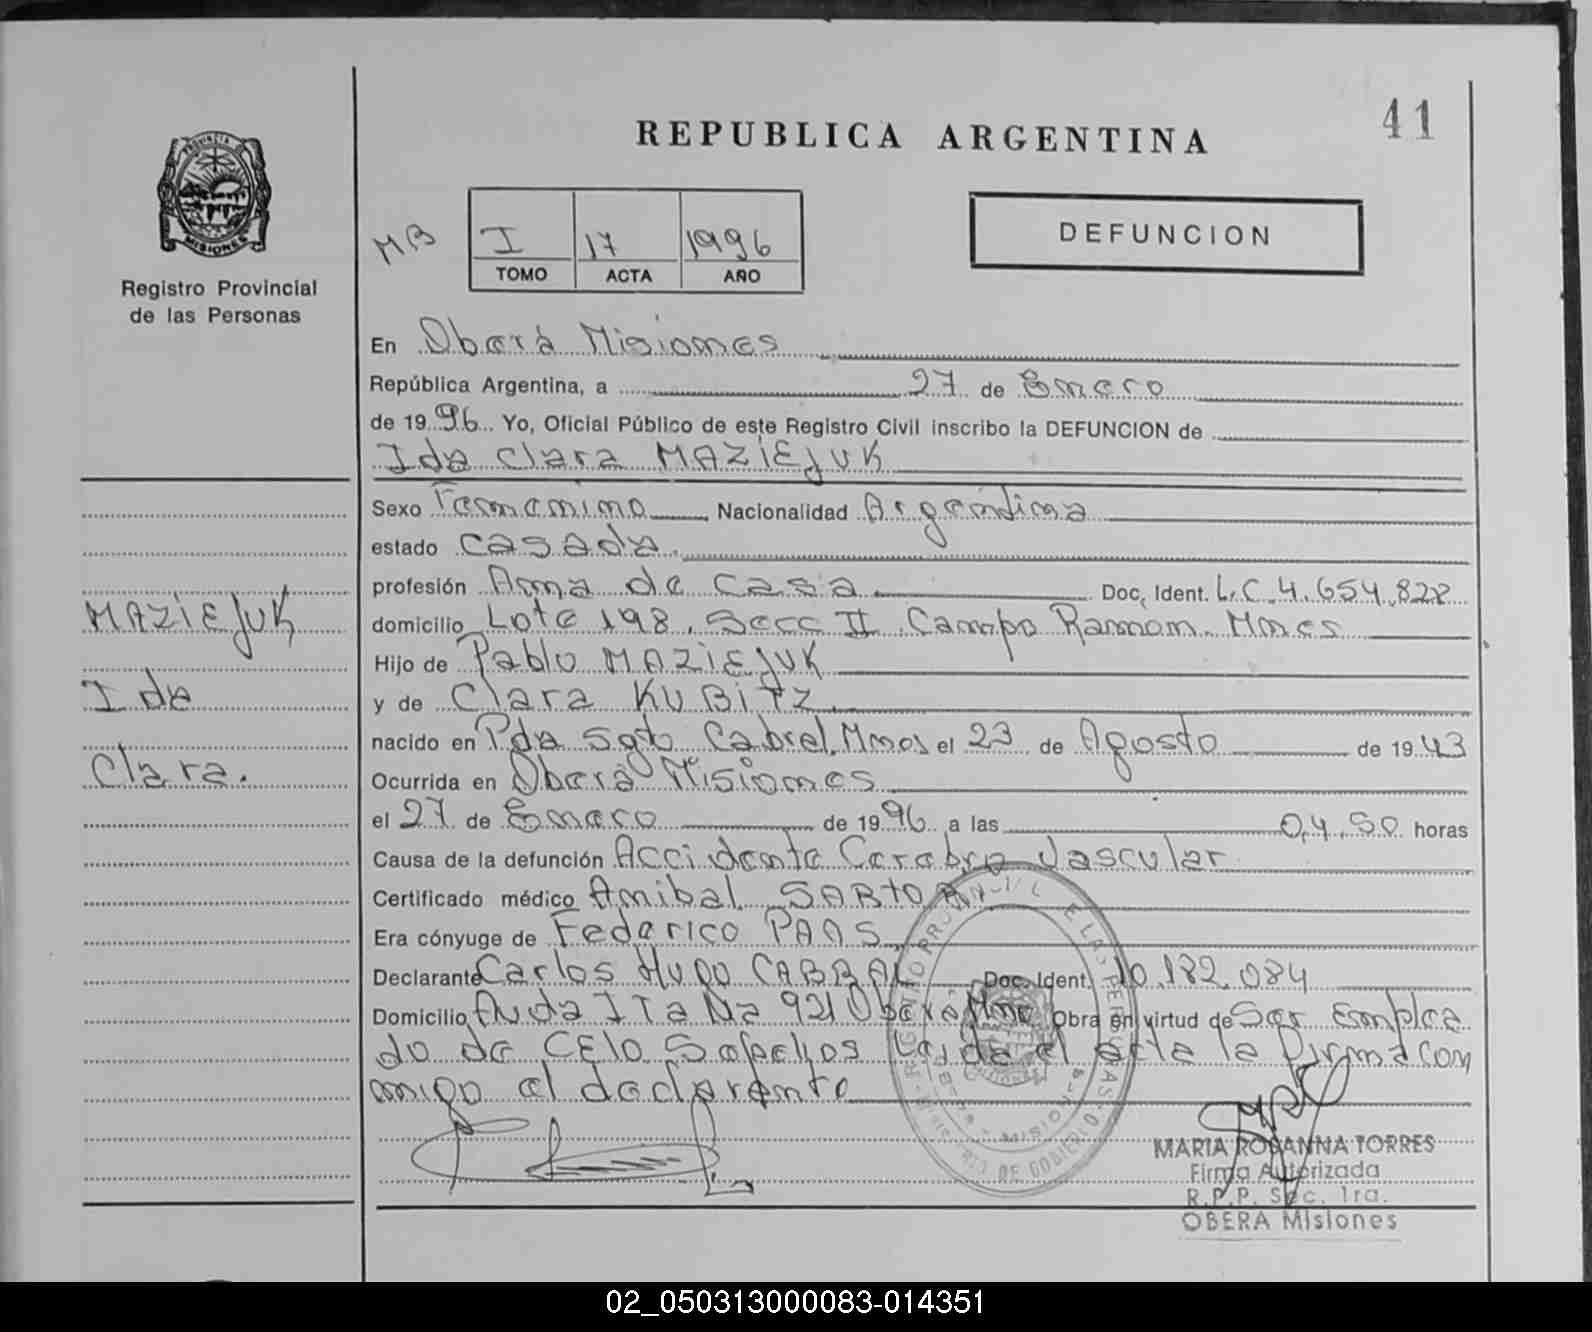 41
REPUBLICA ARGENTINA
PROVINCIA DE
MISIONES
Registro Provincial
de las Personas
MB
I 17 1996
TOMO ACTA AÑO
DEFUNCION
En Oberá Misiones
República Argentina, a 27 de Enero
de 1996 Yo, Oficial Público de este Registro Civil inscribo la DEFUNCION de
Ida Clara MAZIEJUK
Sexo Femenino Nacionalidad Argentina
estado Casada.
profesión Ama de Casa Doc, Ident. L.C.4.654.828
domicilio Lote 198, Secc II, Campo Ramon. Mnes
Hijo de Pablo MAZIEJUK
y de Clara KUBITZ
nacido en Pda Sgto Cabral, Mnes el 23 de Agosto de 1943
Ocurrida en Oberá Misiones
el 27 de Enero de 1996 a las 04,50 horas
Causa de la defunción Accidente Cerebro Vascular
Certificado médico Anibal SARTORI
Era cónyuge de Federico PAAS
Declarante Carlos Hugo CABRAL Doc. Ident. 10.182.084
Domicilio Avda Nº 921 Oberá Mnes Obra en virtud de Ser Emplea
do de CELO Sepelios Leida el acta la firma con
migo el declarante
MAZIEJUK
Ida
Clara.
MARIA ROSANNA TORRES
Firma Autorizada
R.P.P. Sec. 1ra.
OBERA Misiones
02_050313000083-014351